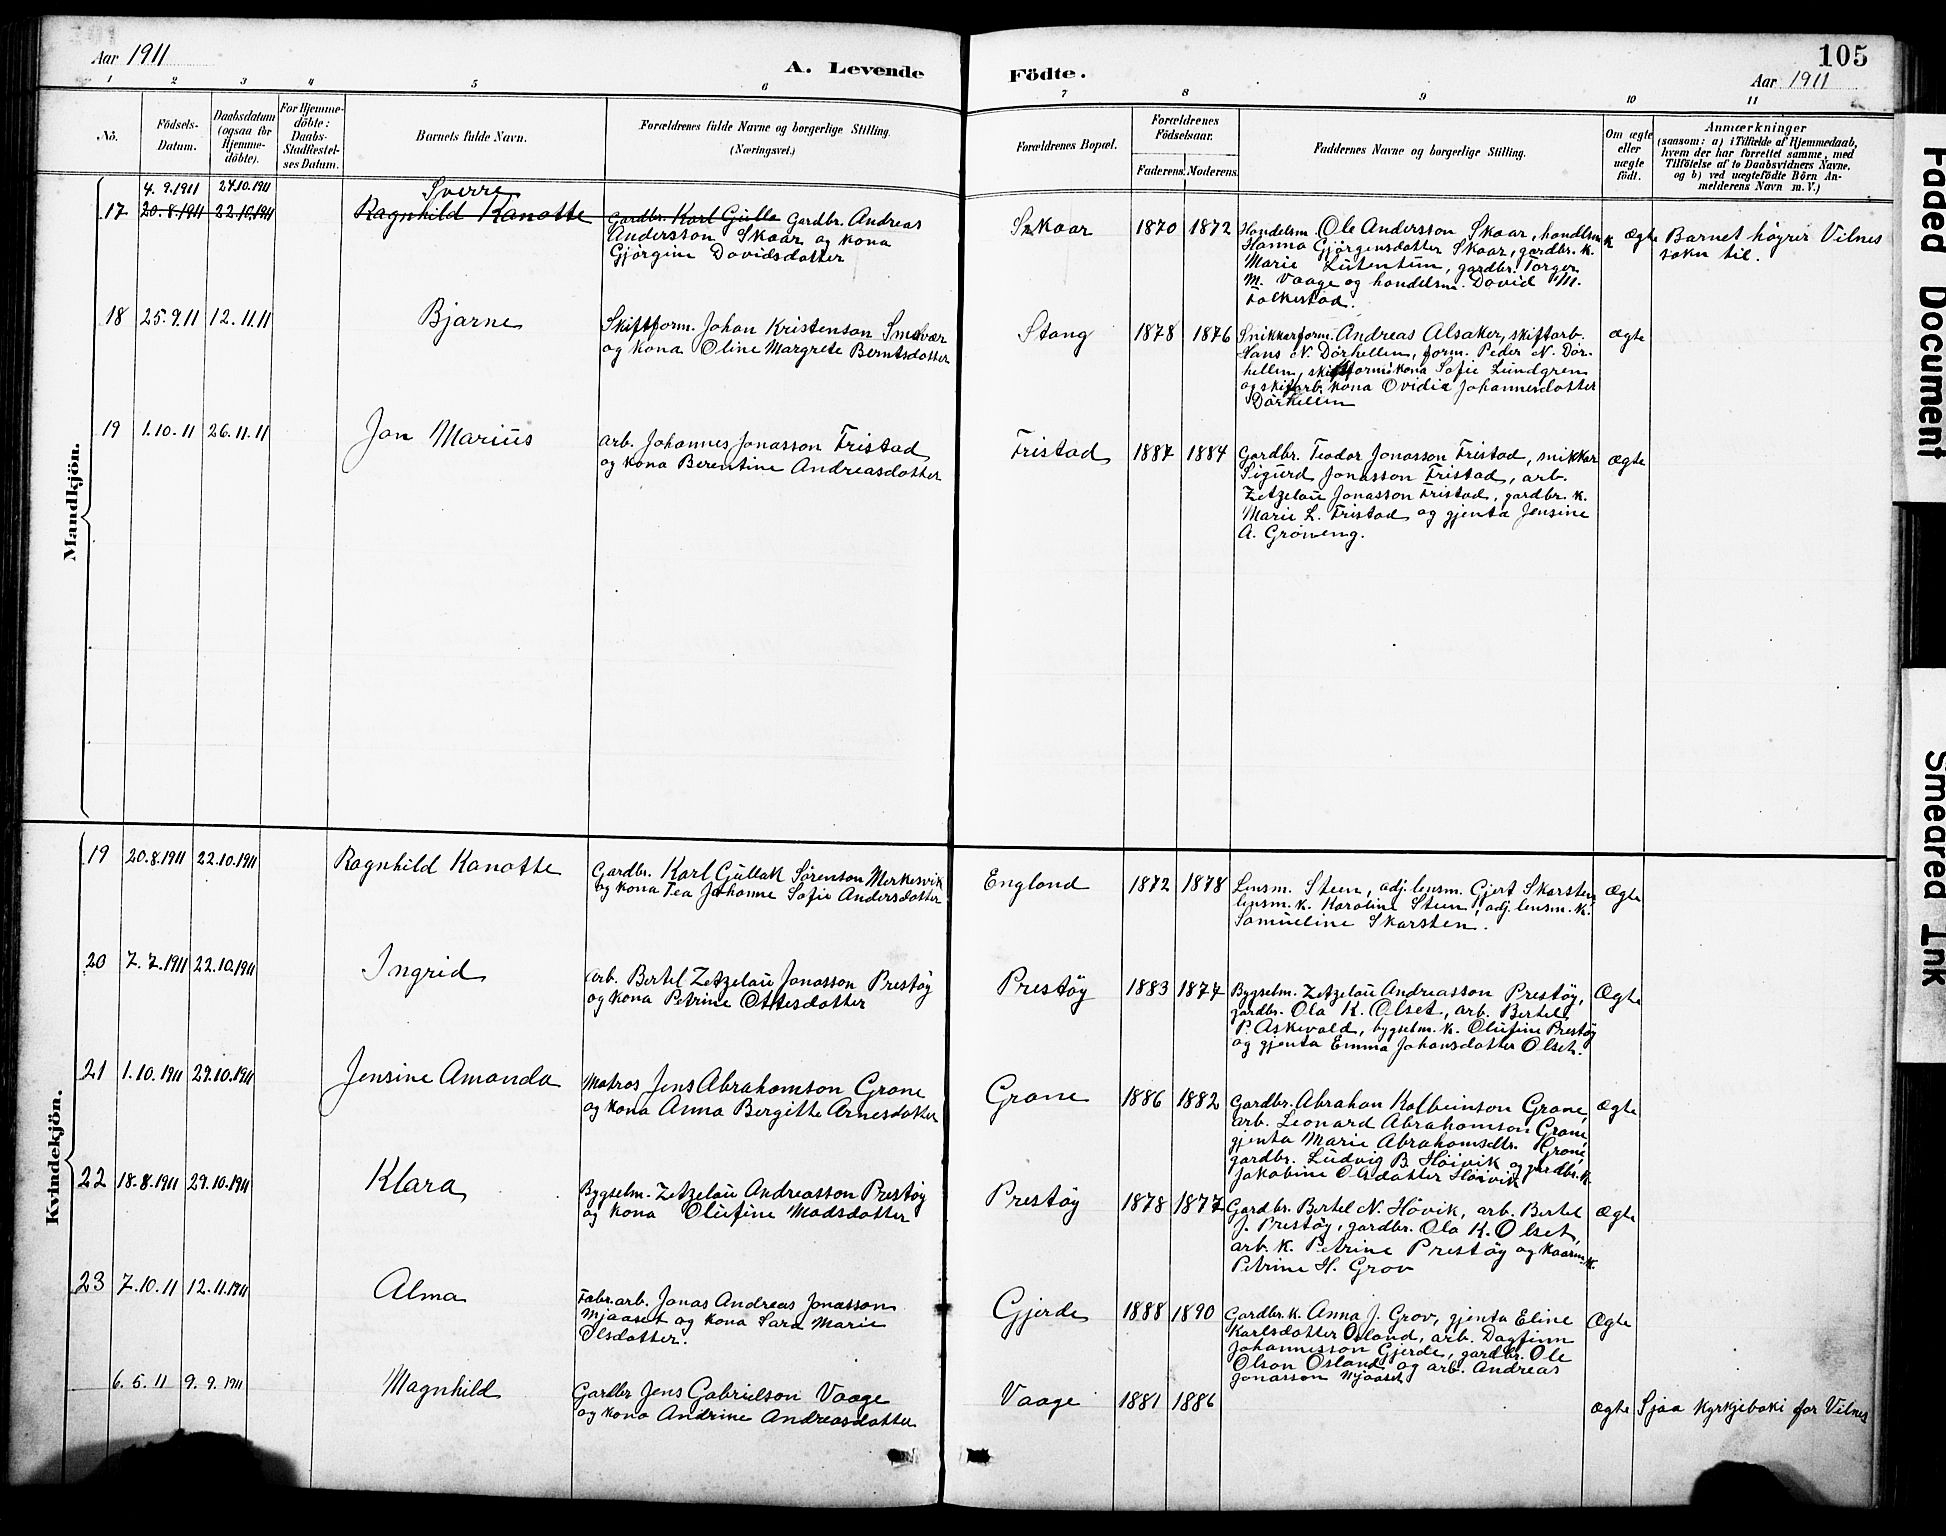 Aar 1911
A. Levende Födte.
105
Aar 1911
1 2 3 4 5 6 7 8 9 10 11
No.
Födsels-Datum.
Daabsdatum (ogsaa for Hjemme-döbte).
For Hjemme-döbte: Daabs-Stadfæstel-ses Datum.
Barnets fulde Navn.
Forældrenes fulde Navne og borgerlige Stilling. (Næringsvei.)
Forældrenes Bopæl.
Forældrenes Födselsaar.
Faderens. Moderens.
Faddernes Navne og borgerlige Stilling.
Om ægte eller uægte födt.
Anmærkninger
(saasom: a) i Tilfælde af Hjemmedaab,
hvem der har forrettet samme, med
Tilföielse af to Daabsvidners Navne.
og b) ved uægtefödte Börn An-
melderens Navn m. V.)
Mandkjön.
4. 9.1911 24.10.1911 Sverre
17 20.8.1911 22.10.1911 Ragnhild Kanotte
Gardbr. Karl Gulla Gardbr. Andreas
Andersson Skaar og kona
Gjørgine Davidsdotter
Skaar 1870 1872
Handelsm. Ole Andersson Skaar, handlsm. k
Hanna Gjørgensdotter Skaar, gardbr. k.
Marie Lutentun, gardbr. Torger
M. Vaage og handelsm. David M.
Folkestad.
Ægte
Barnet høyrer Vilnes
sokn til.
18 25.9.11 12.11.11 Bjarne
Skiftform. Johan Kristenson Smelvær
og kona Oline Margrete Berntsdotter
Stang 1878 1876
Snikkarform. Andreas Alsaker, skiftarb.
Hans N. Dørhellen, form. Peder N. Dør-
hellen, skiftform. kona Sofie Lundgren
og skiftarb. kona Ovidia Johannesdotter
Dørhellen
ægte
19 1.10.11 26.11.11 Jon Marius
arb. Johannes Jonasson Fristad
og kona Berentine Andreasdotter
Fristad 1887 1884
Gardbr. Teodor Jonasson Fristad, snikkar
Sigurd Jonasson Fristad, arb.
Zetzelau Jonasson Fristad, gardbr. k.
Marie L. Fristad og gjenta Jensine
A. Grøneng.
ægte
Kvindekjön.
19 20.8.1911 22.10.1911 Ragnhild Kanotte
Gardbr. Karl Gullak Sørenson Merkesvik
og kona Tea Johanne Sofie Andersdotter
England 1872 1878
Lensm. Steen, adj. lensm. Gjert Skarsten
lensm. k. Karoline Steen, adj. lensm. k.
Samueline Skarsten.
Ægte
20 7.7.1911 22.10.1911 Ingrid
arb. Bertel Zetzelau Jonasson Prestøy
og kona Petrine Ottesdotter
Prestøy 1883 1874
Bygselm. Zetzelau Andreasson Prestøy,
gardbr. Ola K. Olset, arb. Bertel
P. Askevold, bygselm. k. Olufine Prestøy
og gjenta Emma Johansdotter Olset.
Ægte
21 1.10.1911 29.10.1911 Jensine Amanda
Matros Jens Abrahamson Grane
og kona Anna Bergitte Arnesdotter
Grane 1886 1882
Gardbr. Abraham Kolbeinson Grane,
arb. Leonard Abrahamson Grane,
gjenta Marie Abrahamsdtr. Grane,
gardbr. Ludvig B. Høivik og gardbr. k.
Jakobine Olsdotter Høivik
Ægte
22 18.8.1911 29.10.1911 Klara
Bygselm. Zetzelau Andreasson Prestøy
og kona Olufine Madsdotter
Prestøy 1878 1877
Gardbr. Bertel N. Høvik, arb. Bertel
J. Prestøy, gardbr. Ola K. Olset,
arb. k. Petrine Prestøy og kaarm. k.
Petrine H. Grov
Ægte
23 7.10.11 12.11.1911 Alma
Fabr. arb. Jonas Andreas Jonasson
Mjaaset og kona Sara Marie
Olsdotter.
Gjerde 1888 1890
Gardbr. k. Anna J. Grov, gjenta Eline
Karlsdotter Osland, arb. Dagfinn
Johannesson Gjerde, gardbr. Ole
Olson Osland og arb. Andreas
Jonasson Mjaaset
Ægte
6. 5. 11 9. 9. 1911 Magnhild
Gardbr Jens Gabrielson Vaage
og kona Andrine Andreasdotter
Vaage 1881 1886
Ægte
Sjaa kyrkjeboki for Vilnes
Faded Document
Smeared Ink